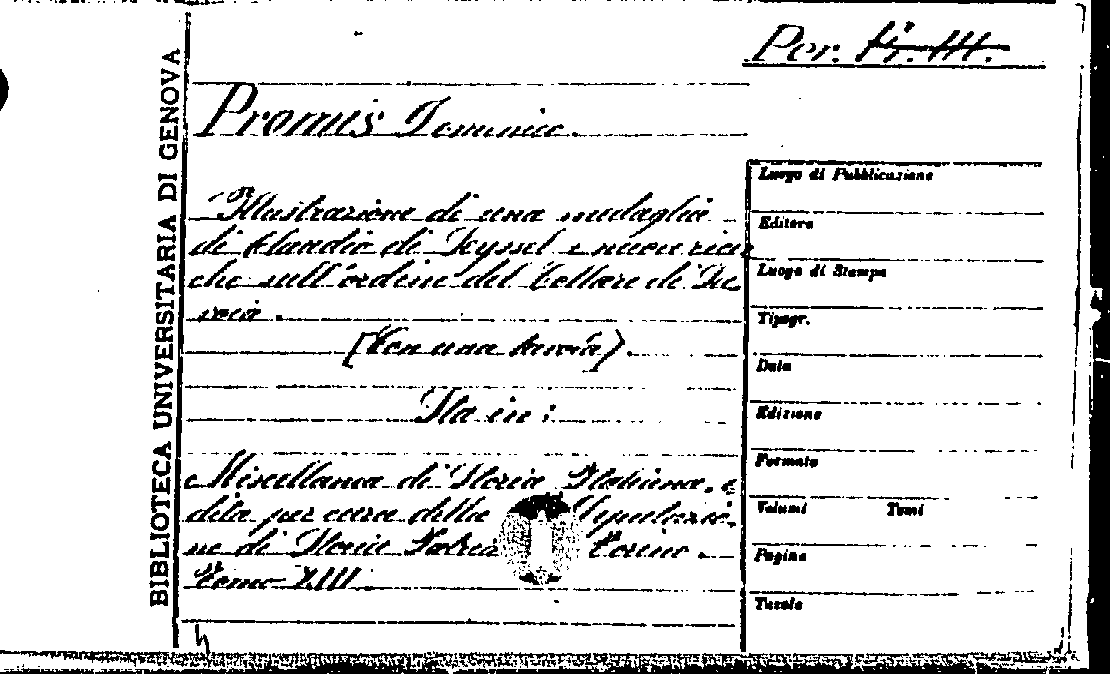 BIBLIOTECA UNIVERSITARIA DI GENOVA
Per.
Promis Domenico.
Illustrazione di una medaglia
di Claudio di Seyssel e nuove ricer
che sull'ordine del Collare di Sa
voia.
(Con una tavola).
Sta in:
Miscellanea di Storia Italiana, e
dita per cura della Deputazio
ne di Storia Patria Torino.
Tomo XIII.
Luogo di Pubblicazione
Editore
Luogo di Stampa
Tipogr.
Data
Edizione
Formato
Volumi Tomi
Pagine
Tavole